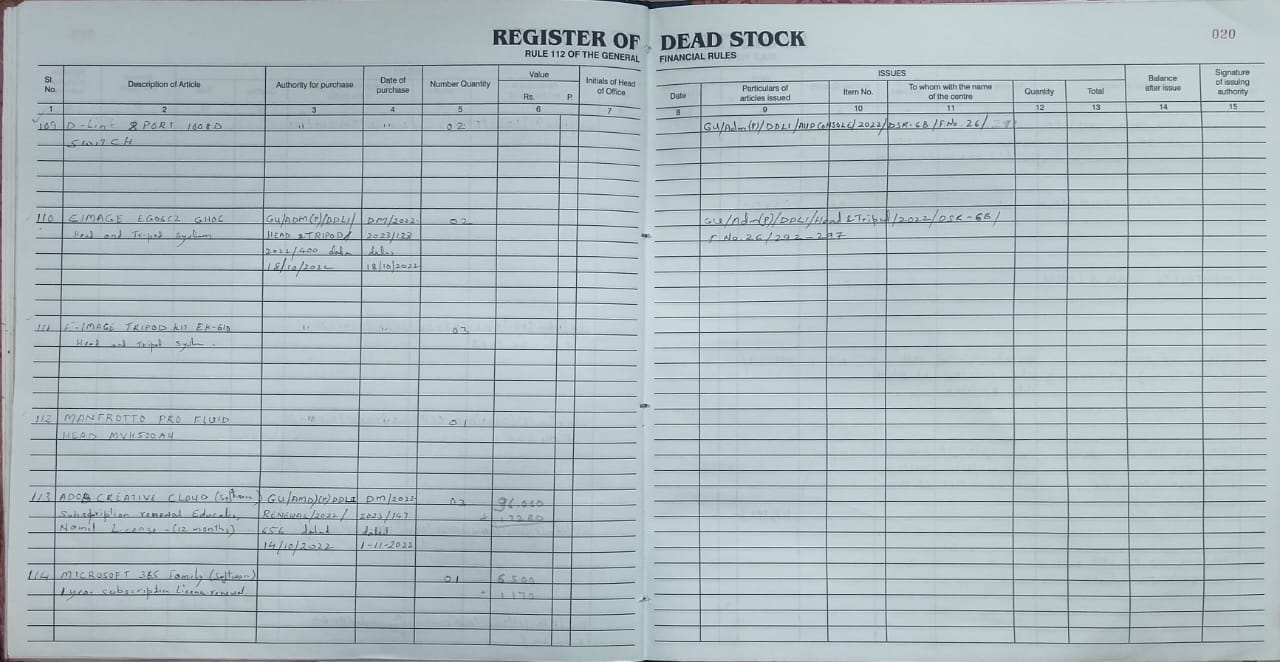 REGISTER OF DEAD STOCK
RULE 112 OF THE GENERAL FINANCIAL RULES
020
Sl. No. Description of Article Authority for purchase Date of purchase Number Quantity Value Rs. P. Initials of Head of Office
ISSUES
Date Particulars of articles issued Item No. To whom with the name of the centre Quantity Total Balance after issue Signature of issuing authority
1 2 3 4 5 6 7 8 9 10 11 12 13 14 15
109 D-Link 8 PORT 1008D " " 02 GU/Adm(P)/DDLI/AUDCONSOLE/2022/DSR-6B/F.No.26/291
SWITCH
110 EIMAGE EG06C2 GH06 GU/ADM(P)/DDLI/ DM/2022- 02 GU/Adm(P)/DDLI/Head & Tripod/2022/DSR-6B/
Head and Tripod System HEAD & TRIPOD/ 2023/133 F.No.26/292-297
2022/400 dated dated
18/10/2022 18/10/2022
111 E-IMAGE TRIPOD KIT EK-610 " " 03
Head and Tripod System.
112 MANFROTTO PRO FLUID " " 01
HEAD MVH500AH
113 ADOB CREATIVE CLOUD (Software) GU/AMD(P)DDLI DM/2022 02 96,000
Subscription renewal Education RENEWAL/2022/ 2023/147 + 17280
Named License - (12 months) 656 dated dated
14/10/2022 1-11-2022
114 MICROSOFT 365 Family (Software) 01 6500
1 year subscription License renewal 1170